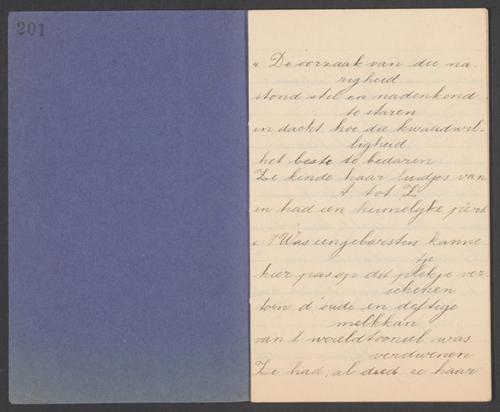 201
" De oorzaak van die na-
righeid
stond stil en nadenkend
te staren
en dacht hoe die kwaadwil-
ligheid
het beste te bedaren
Ze kende haar luidjes van
A tot Z
en had een heimelijke pret
't Was een gebarsten kanne
tje
hier pas op dit plekje ver-
schenen
toen d'oude en deftige
melkkan
van 't wereldtooneel was
verdwenen
Ze had, al deed ze haar